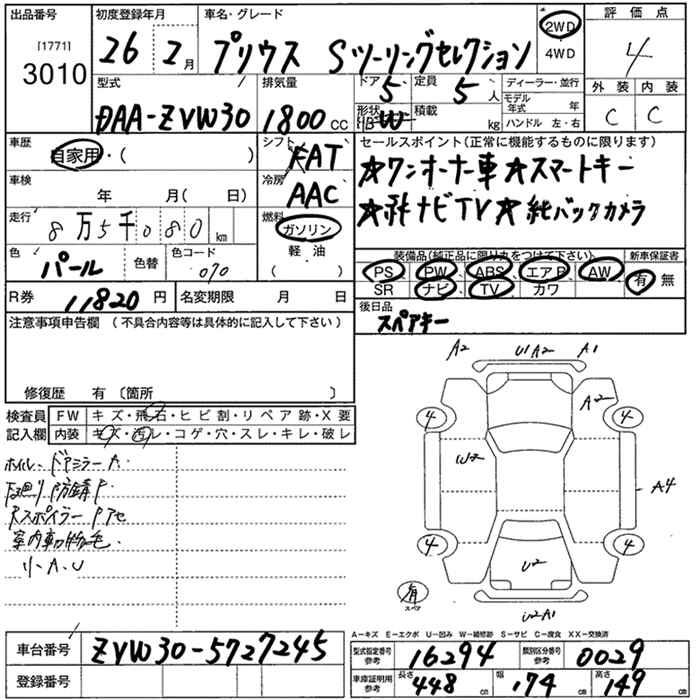 出品番号
[1771]
3010
初度登録年月
26 2月
車名・グレード
プリウス Sツーリングセレクション
2WD
4WD
評価点
4
外装 内装
C C
型式
DAA-ZVW30
排気量
1800cc
ドア 5
定員 5人
形状
積載 kg
ディーラー・並行
モデル年式 年
ハンドル 左・右
車歴
自家用・( )
シフト
FAT
セールスポイント(正常に機能するものに限ります)
★ワンオーナー車★スマートキー
★純ナビTV★純バックカメラ
車検 年 月( 日)
冷房
AAC
走行 8万5千080km
燃料
ガソリン
軽油
( )
色 パール 色替
色コード 070
装備品(純正品に限り丸をつけて下さい)
PS PW ABS エアB AW
SR ナビ TV カワ
新車保証書
有・無
R券 11820円
名変期限 月 日
後日品
スペアキー
注意事項申告欄(不具合内容等は具体的に記入して下さい)
修復歴 有 〔箇所 〕
検査員記入欄
FW キズ・飛石・ヒビ割・リペア跡・X要
内装 キズ・汚レ・コゲ・穴・スレ・キレ・破レ
ホイル・ドアミラーA
下廻り防錆P
Rスポイラー
室内動物毛
リ-A.U
A2 U1A2 A1
A2
4 4
W2
A4
4 4
U2
有
スペア
U2A1
A-キズ E-エクボ U-凹み W-補修跡 S-サビ C-腐食 XX-交換済
車台番号 ZVW30-5727245
登録番号
型式指定番号参考 16294
類別区分番号参考 0029
車庫証明用参考 長さ 448cm 幅 174cm 高さ 149cm